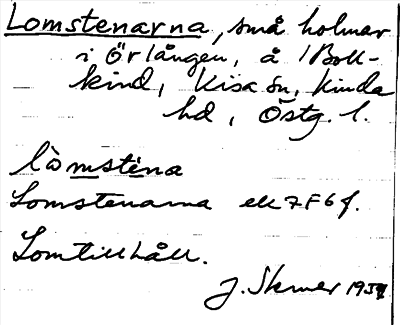 Lomstenarna, små holmar
i Örlången, å Boll-
kind, Kisa sn, Kinda
hd, Östg. l.
lo̊mste̊na
Lomstenarna ek 7F6f.
Lomtillhåll.
J. Skener 195